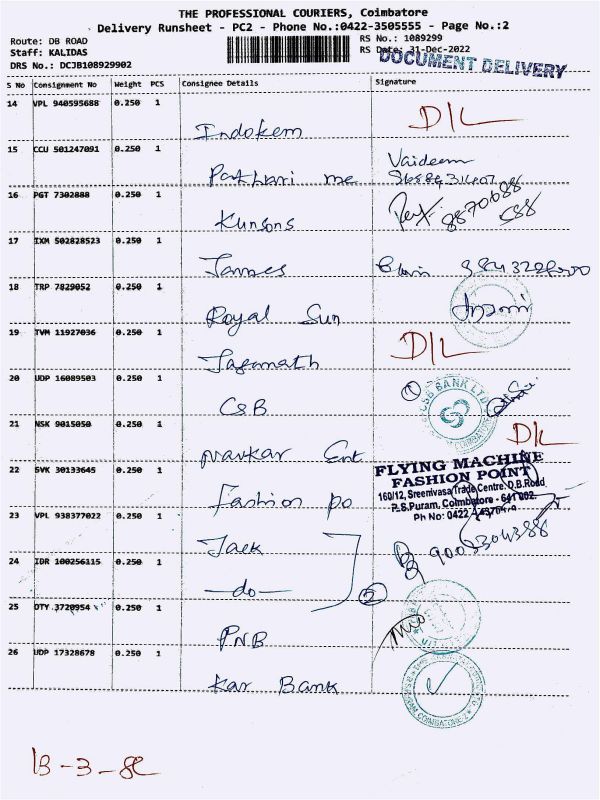 THE PROFESSIONAL COURIERS, Coimbatore
Delivery Runsheet - PC2 - Phone No.:0422-3505555 - Page No.:2
Route: DB ROAD
Staff: KALIDAS
DRS No.: DCJB108929902
RS No.: 1089299
RS Date: 31-Dec-2022
DOCUMENT DELIVERY
S No Consignment No Weight PCS Consignee Details Signature
14 VPL 940595688 0.250 1 Indokem D/L
15 CCU 501247091 0.250 1 me Vaideem
16 PGT 7302888 0.250 1 Kunsons
17 IXM 502828523 0.250 1 James
18 TRP 7829052 0.250 1 Royal Sun
19 TVM 11927036 0.250 1 Jagannath D/L
20 UDP 16089503 0.250 1 CSB 1 CSB BANK LTD
21 NSK 9015050 0.250 1 Ent D/L
22 SVK 30133645 0.250 1 Fashion po
FLYING MACHINE
FASHION POINT
160/12, Sreenivasa Trade Centre, D.B.Road,
R.S.Puram, Coimbatore - 641 002.
Ph No: 0422
23 VPL 938377022 0.250 1 Jack
24 IDR 100256115 0.250 1 -do- 2
25 DTY 3720954 0.250 1 PNB
26 UDP 17328678 0.250 1 Kar Bank
13-3-8C